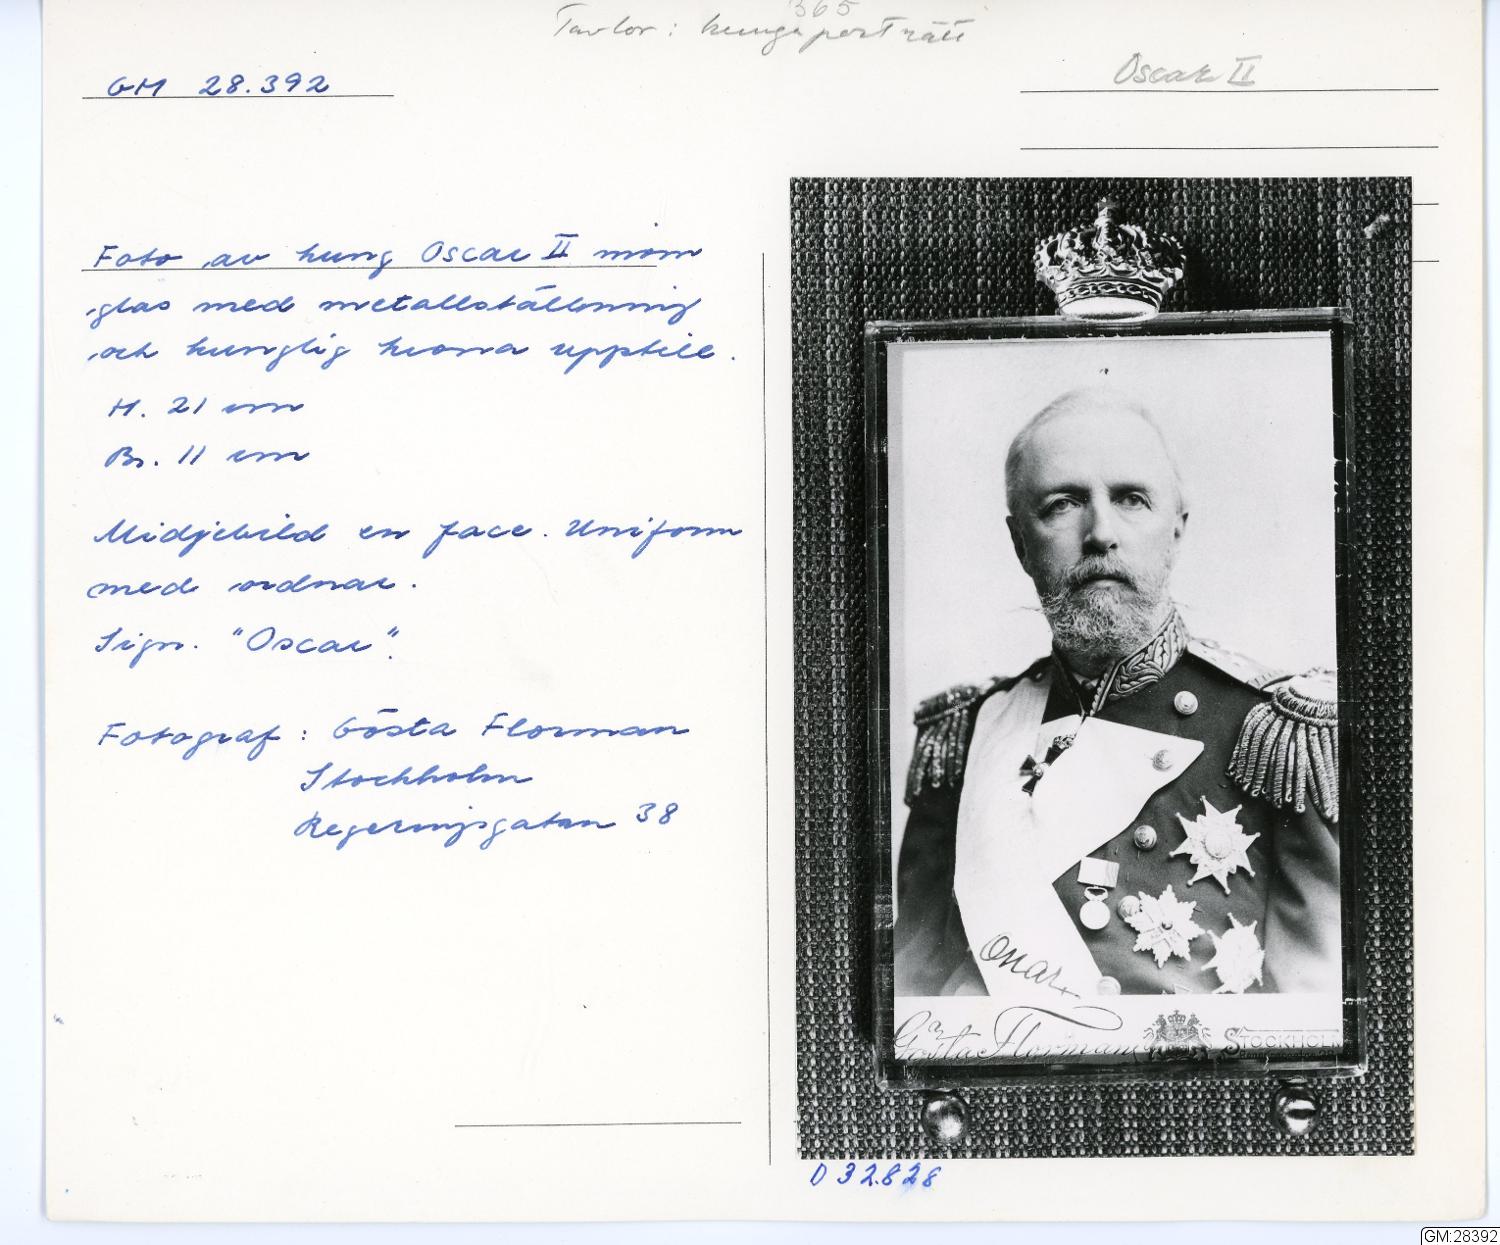 365
Tavlor: kungaporträtt
GM 28.392
Oscar II
Foto av kung Oscar II inom
glas med metallställning
och kunglig krona upptill.
H. 21 cm
Br. 11 cm
Midjebild en face. Uniform
med ordnar.
Sign. "Oscar".
Fotograf: Gösta Florman
Stockholm
Regeringsgatan 38
Oscar
Gösta Florman STOCKHOLM
D 32828
GM:28392